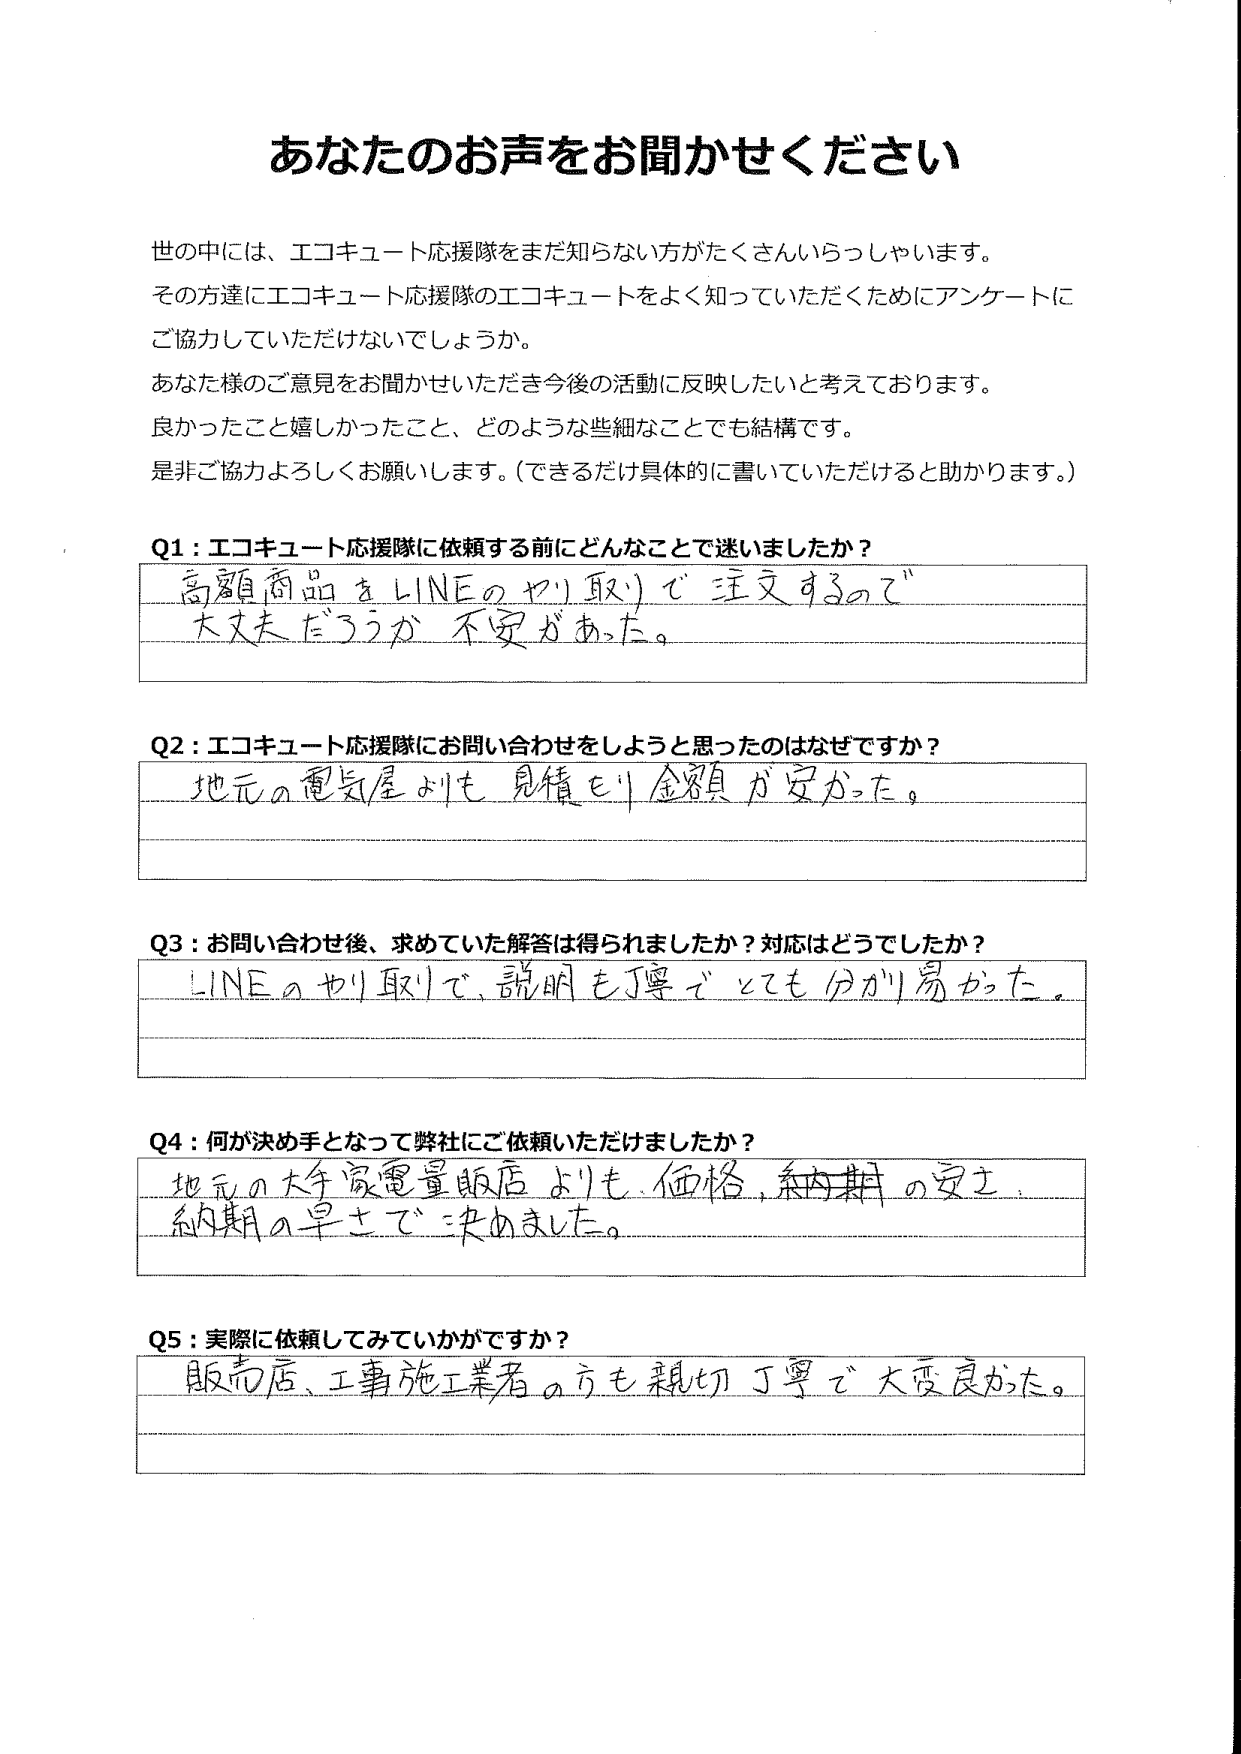 あなたのお声をお聞かせください
世の中には、エコキュート応援隊をまだ知らない方がたくさんいらっしゃいます。
その方達にエコキュート応援隊のエコキュートをよく知っていただくためにアンケートに
ご協力していただけないでしょうか。
あなた様のご意見をお聞かせいただき今後の活動に反映したいと考えております。
良かったこと嬉しかったこと、どのような些細なことでも結構です。
是非ご協力よろしくお願いします。(できるだけ具体的に書いていただけると助かります。)
Q1：エコキュート応援隊に依頼する前にどんなことで迷いましたか？
高額商品をLINEのやり取りで注文するので
大丈夫だろうか 不安があった。
Q2：エコキュート応援隊にお問い合わせをしようと思ったのはなぜですか？
地元の電気屋よりも 見積もり金額が安かった。
Q3：お問い合わせ後、求めていた解答は得られましたか？対応はどうでしたか？
LINEのやり取りで、説明も丁寧でとても分かり易かった。
Q4：何が決め手となって弊社にご依頼いただけましたか？
地元の大手家電量販店よりも、価格、納期の安さ、
納期の早さで決めました。
Q5：実際に依頼してみていかがですか？
販売店、工事施工業者の方も親切丁寧で大変良かった。